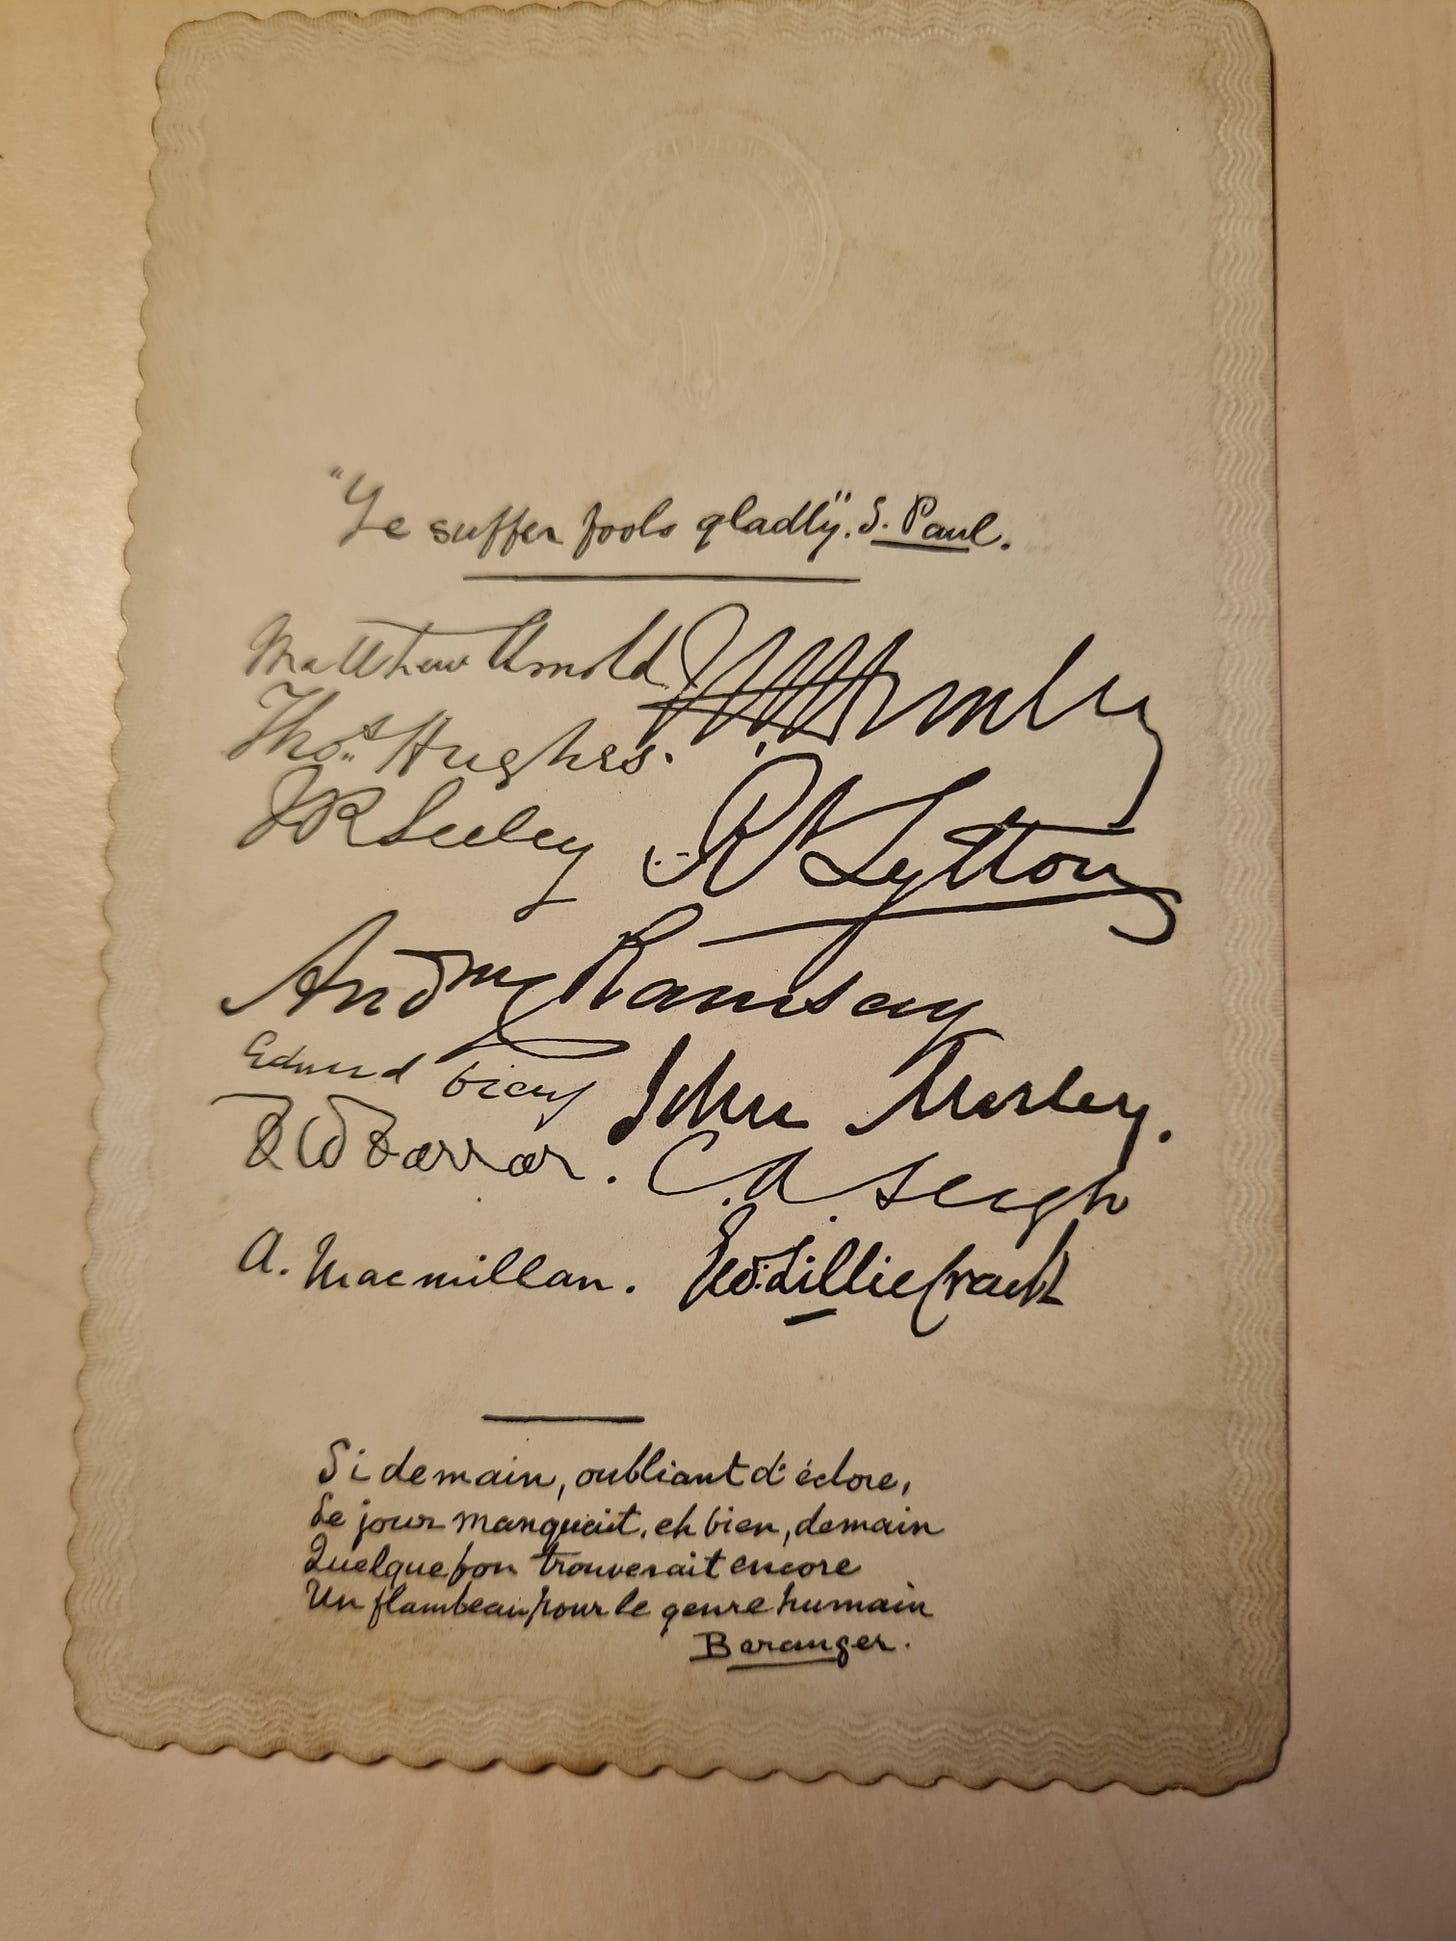 "Ye suffer fools gladly". S. Paul.
Matthew Arnold
Thos. Hughes.
JR Seeley
R Lytton
Andw Ramsay
Edmund
John Morley.
FW Farrar.
C. A.
A. Macmillan.
Si demain, oubliant d'éclore,
Le jour manquait, eh bien, demain
Quelque fou trouverait encore
Un flambeau pour le genre humain
Beranger.